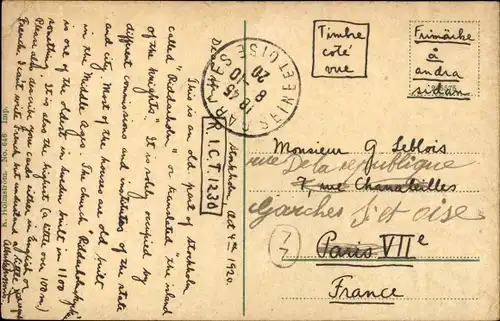 Stockholm, Oct 4th 1920.
R.I.C.T. 1230
Dear
This is an old part of Stockholm
called "Riddarholm" or translated "the island
of the knights". It is solely occupied by
different commissions and institutes of the state
and city. Most of the houses are old built
in the Middle Ages. The church "Riddarholmskyrk"
is one of the oldest in Sweden built in 1100
something. It is also the highest (a little over 100 m)
Please also describe your cards either in English or
French. I can't write French but understand a little
GARCHES SEINE ET OISE
8 45
20 10
Timbre
coté
vue
Frimärke
å
andra
sidan
Monsieur G Leblois
rue De la république
7, rue Chanaleilles
Garches S et oise
Paris VIIe
France